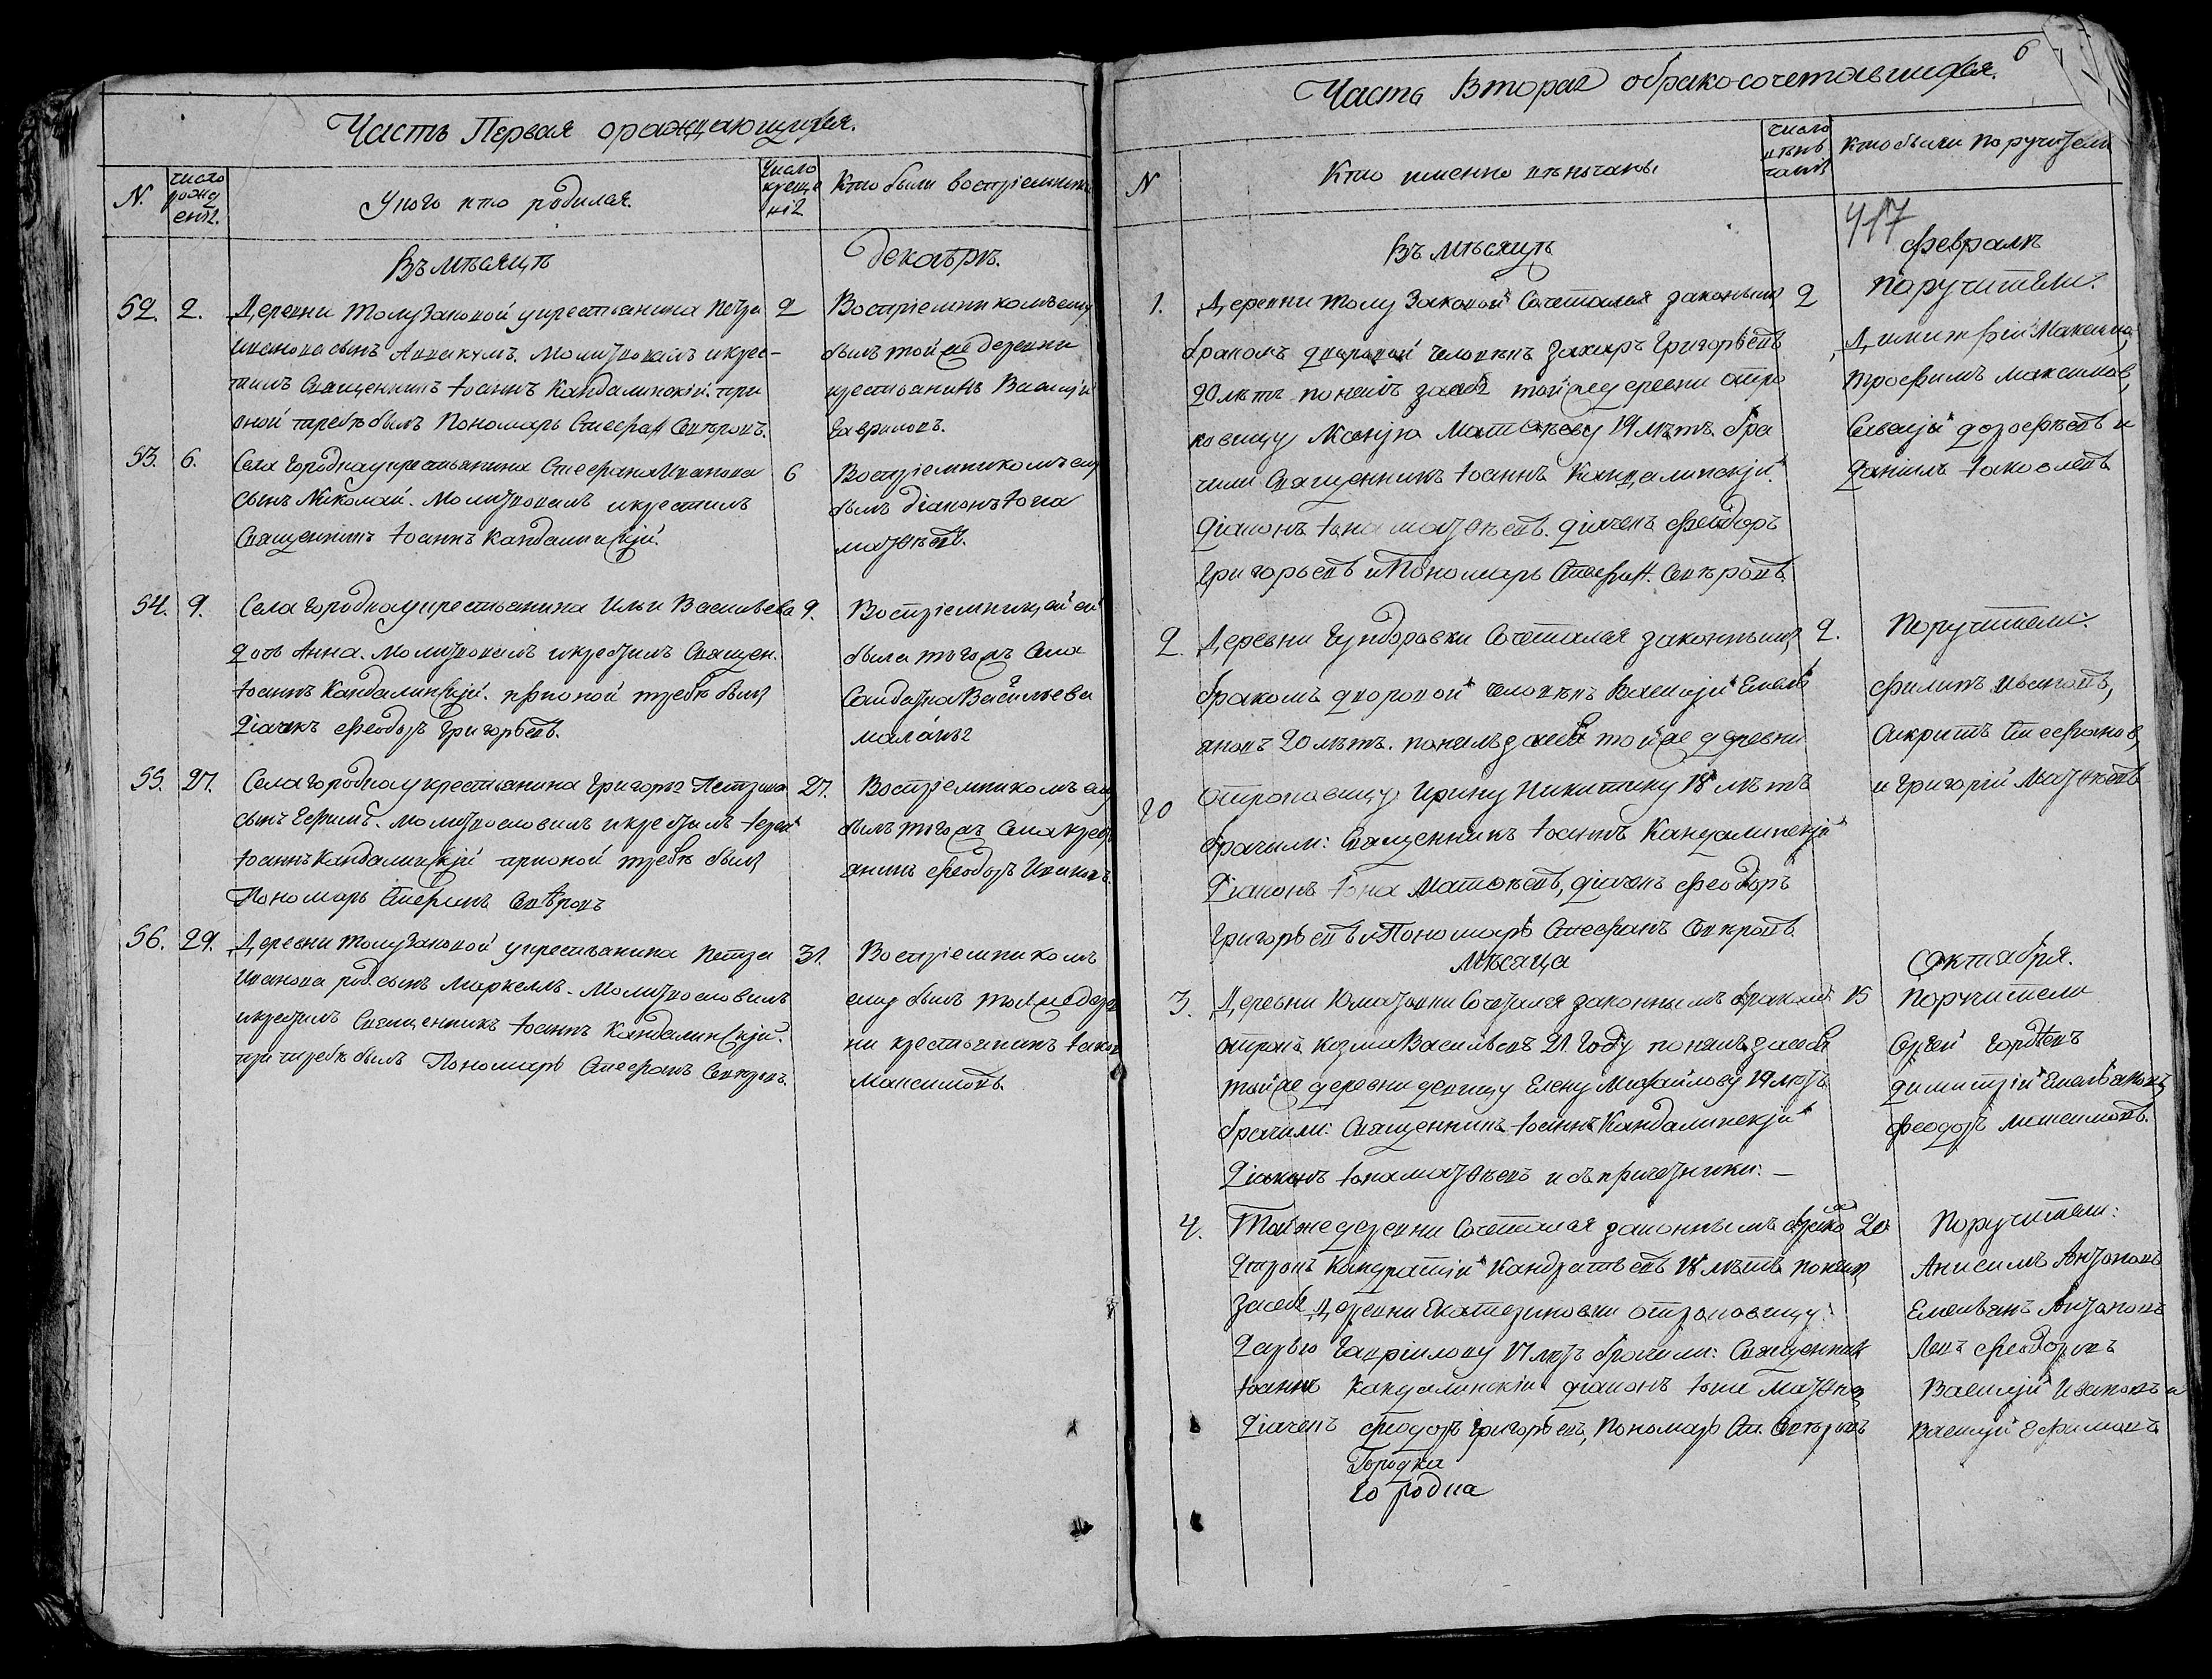 Часть Первая ораждающихся.
N.
число рожд енія.
У кого кто родился.
Число креще нія
Кто были воспріемники
Въ мѣсяцѣ
Декабрѣ.
52. 2. Деревни Толузаковой у крестьянина Петра
Иванова сынъ Аввакумъ. Молитвовалъ и крес-
тилъ Священникъ Іоаннъ Кандалинскій. при
оной требѣ былъ Пономарь Стефан Скѣровъ.
2
Воспріемникомъ ему
былъ той же деревни
крестьянинъ Василій
Гавриловъ.
53. 6. Села Городка у крестьянина Стефана Иванова
сынъ Николай. Молитвовалъ и крестилъ
Священникъ Іоаннъ Кандалинскій.
6
Воспріемникомъ ему
былъ діаконъ Іона
Матѳѣевъ.
54. 9. Села Городка у крестьянина Ильи Васильева
дочь Анна. Молитвовалъ и крестилъ Священ.
Іоаннъ Кандалинскій. при оной требѣ былъ
Діачекъ Феодоръ Григорьевъ.
9.
Воспріемницей ей
была того жъ Села
Солдатка Васильева
55. 27. Села Городка у крестьянина Григорья Петрова
сынъ Ефимъ. Молитвословилъ и крестилъ Іерей
Іоаннъ Кандалинскій при оной требѣ былъ
Пономарь Стефанъ Скѣровъ
27.
Воспріемникомъ ему
былъ того жъ Села крест
янинъ Феодоръ Ивановъ.
56. 29. Деревни Толузаковой у крестьянина Петра
Иванова род. сынъ Маркеллъ. Молитвословилъ
и крестилъ Священникъ Іоаннъ Кандалинскій.
при требѣ былъ Пономарь Стефанъ Скѣровъ.
31.
Воспріемникомъ
ему былъ той же дерев
ни крестьянинъ Іаков
Максимовъ.
6
Часть Вторая обракосочетавшихся.
N
Кто именно вѣнчаны
число вѣнчанія
Кто были Поручители
417
Въ мѣсяцѣ
Февралѣ
1. Деревни Толузаковой Сочетался законным
бракомъ дворовой человѣкъ Захаръ Григорьевъ
20 лѣтъ понялъ за себя той же деревни отро
ковицу Ксенію Матѳѣеву 19 лѣтъ. бра
чили Священникъ Іоаннъ Кандалинскій.
Діаконъ Іона Матѳѣевъ. діачекъ Феодоръ
Григорьевъ и Пономарь Стефан. Скѣровъ.
2
Поручители.
Димитрій Максимов
Трофимъ Максимов,
Савелій Дорофѣевъ и
Даніилъ Іаковлевъ
2. Деревни Гундоровки Сочетался законнымъ
бракомъ дворовой человѣкъ Василій Емель
яновъ 20 лѣтъ. понялъ за себя той же деревни
отроковицу Ирину Никитину 18 лѣтъ
20
брачили: Священникъ Іоаннъ Кандалинскій
Діаконъ Іона Матѳѣевъ, діачекъ Феодоръ
Григорьевъ и Пономарь Стефанъ Скѣровъ.
2.
Поручители.
Филипъ Ивановъ,
Стефанов,
и Григорій Матѳѣевъ
Мѣсяца
Октября.
3. Деревни Юматовки Сочетался законнымъ бракомъ
отрокъ Козма Васильевъ 21. году понялъ за себя
той же деревни девицу Елену Михайлову 19 лѣтъ
брачили: Священникъ Іоаннъ Кандалинскій
Діаконъ Іона Матѳѣевъ и съ причетники. –
15
Поручители
Сергей Гордѣевъ
Димитрій Емельяновъ
Феодоръ Максимовъ.
4. Той же деревни Сочетался законнымъ бракомъ
Отрокъ Кондратій Кандратьевъ 18 лѣтъ понялъ
за себя Деревни Екатериновки отроковицу
Дарью Гавріилову 17 лѣтъ брачили: Священник
Іоаннъ Кандалинскій діаконъ Іона Матѳѣев
Діачекъ Феодоръ Григорьевъ, Пономарь Ст. Скѣровъ
20
Поручители:
Анисимъ Антоновъ
Емельянъ Антоновъ
Левъ Феодоровъ
Василій Ивановъ и
Василій Ефимовъ
Городка
Городка